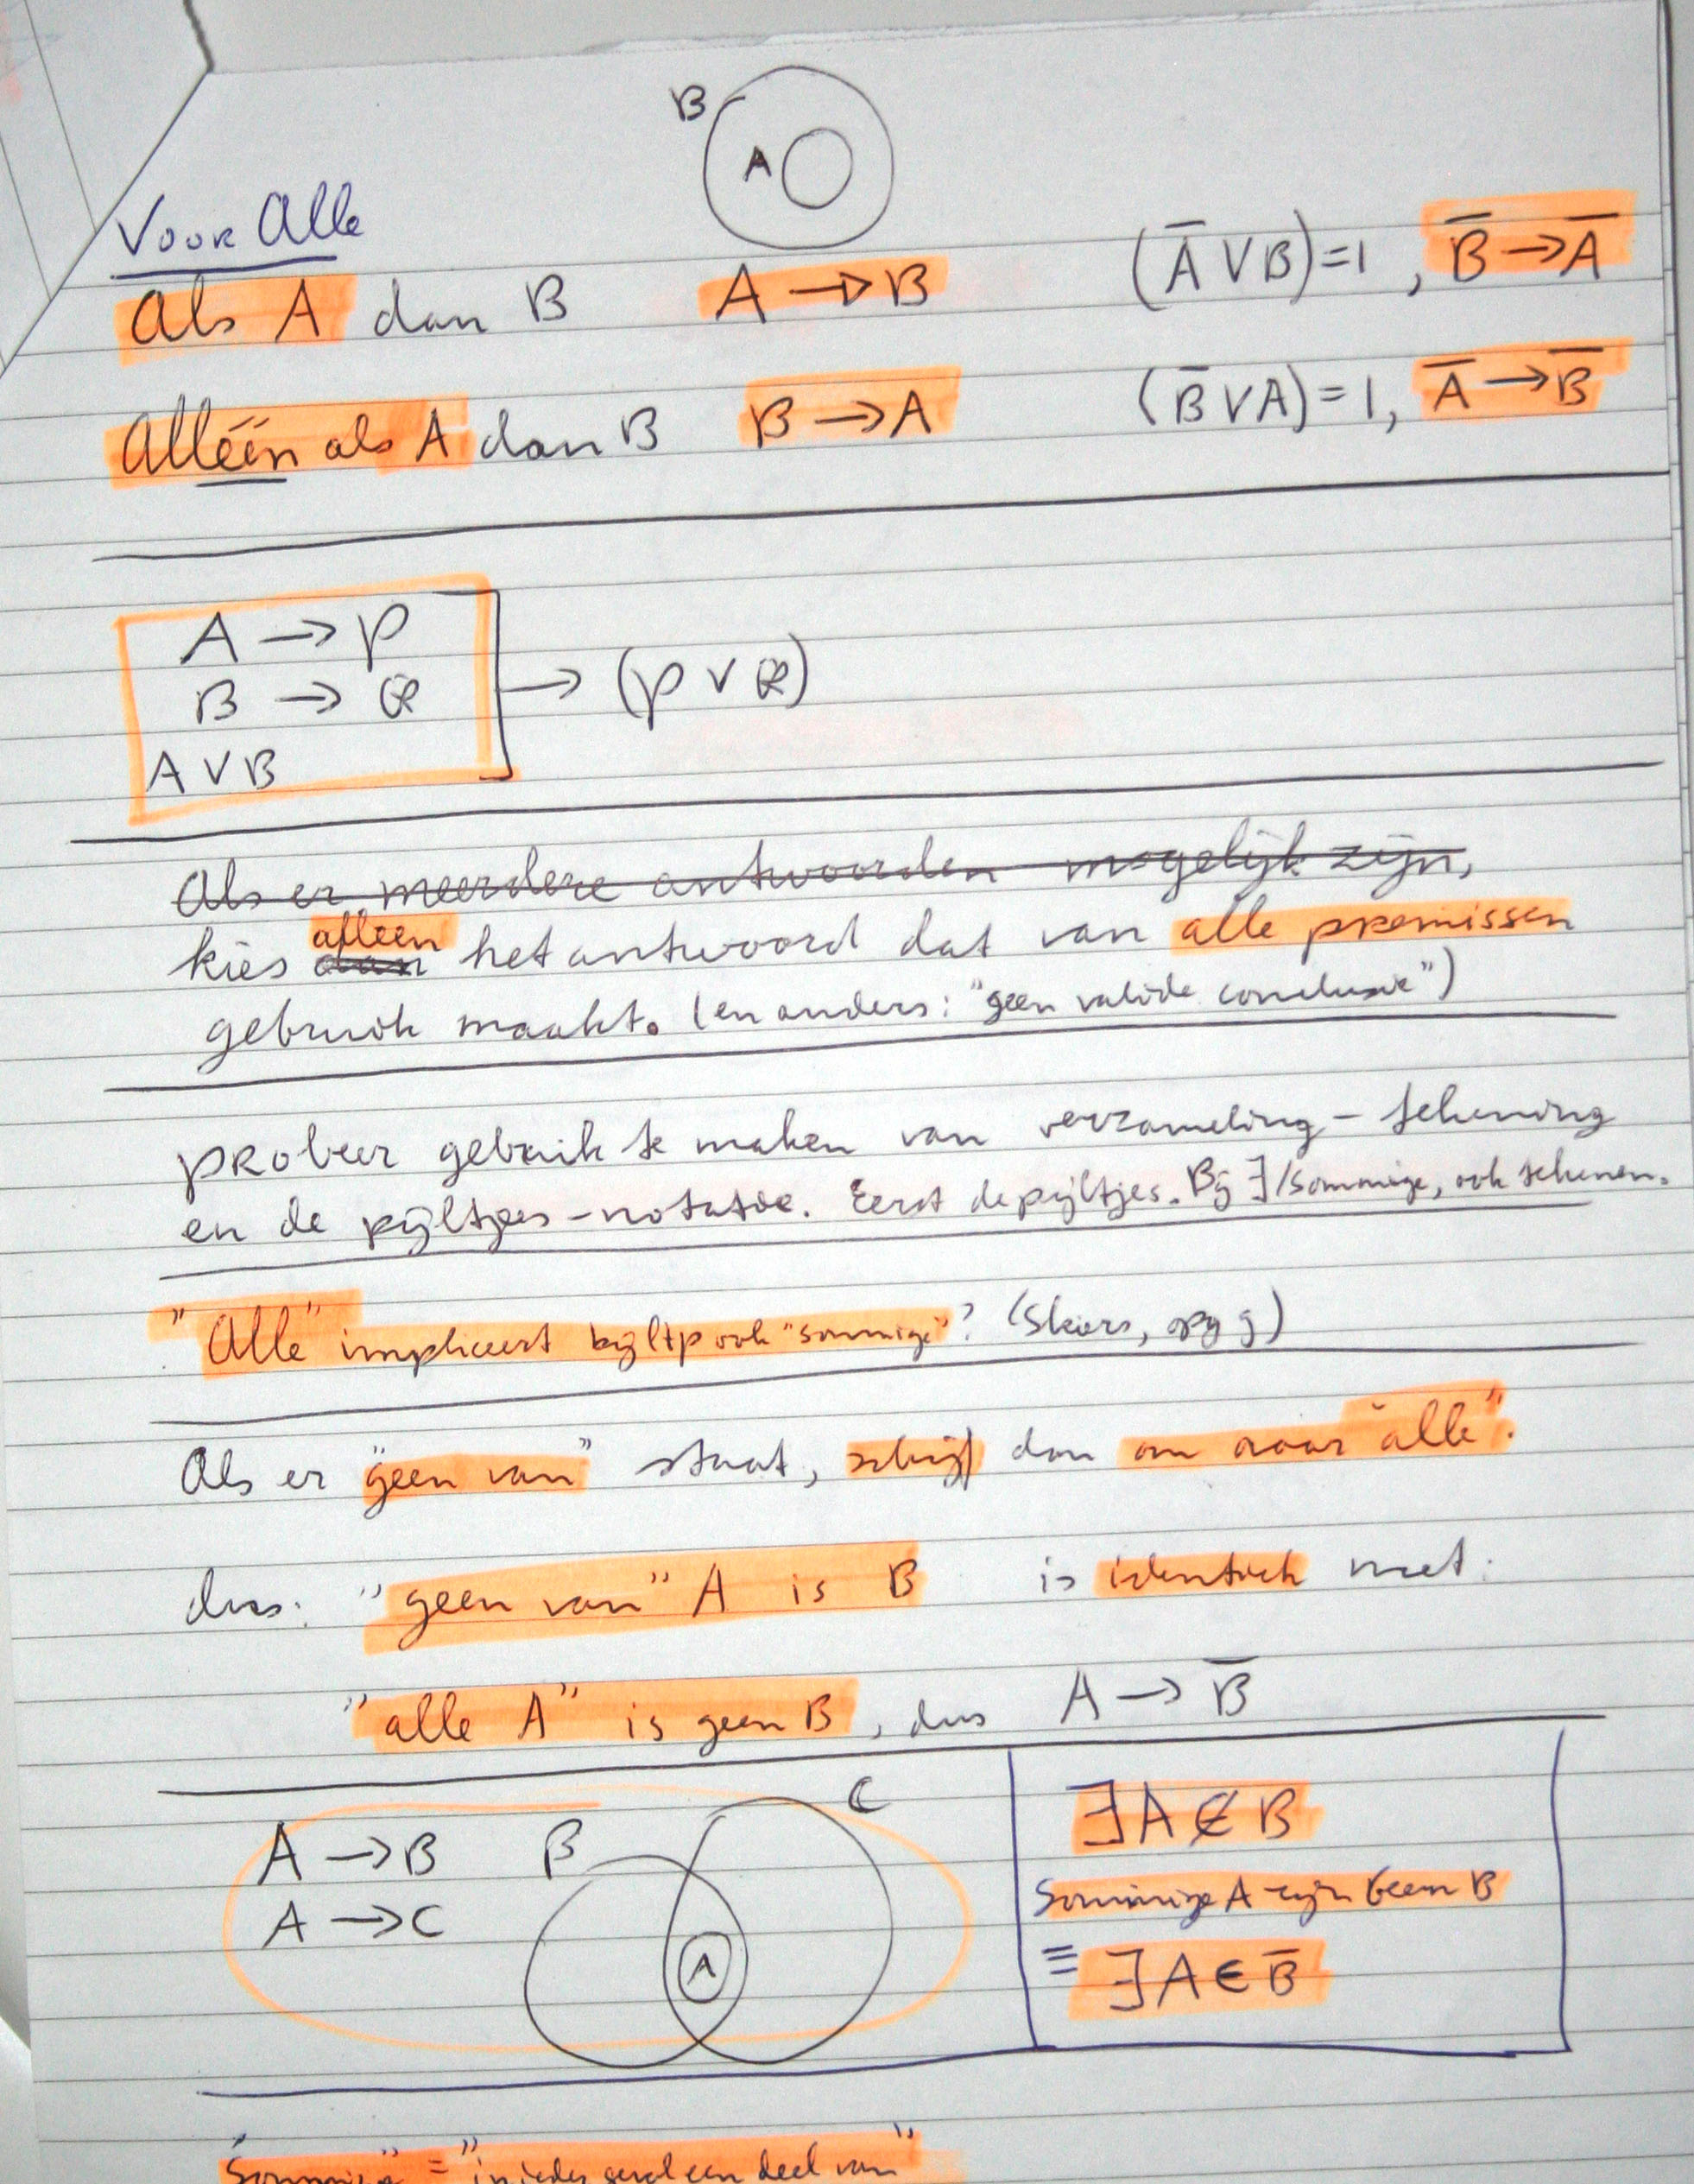 B
A
Voor Alle
Als A dan B A → B (A̅ ∨ B) = 1, B̅ → A̅
Alléén als A dan B B → A (B̅ ∨ A) = 1, A̅ → B̅
A → P
B → R
A ∨ B
→ (P ∨ R)
Als er meerdere antwoorden mogelijk zijn,
alleen
kies dan het antwoord dat van alle premissen
gebruik maakt. (en anders: "geen valide conclusie")
probeer gebruik te maken van verzameling - tekening
en de pijltjes - notatie. Eerst de pijltjes. Bij ∃/sommige, ook tekenen.
"Alle" impliceert bij ltp ook "sommige"? (
Als er "geen van" staat, schrijf dan om naar "alle".
dus: "geen van" A is B is identiek met:
"alle A" is geen B, dus A → B̅
A → B B C
A → C A
∃ A ∉ B
Sommige A zijn geen B
≡ ∃ A ∈ B̅
"Sommige" = "in ieder geval een deel van"